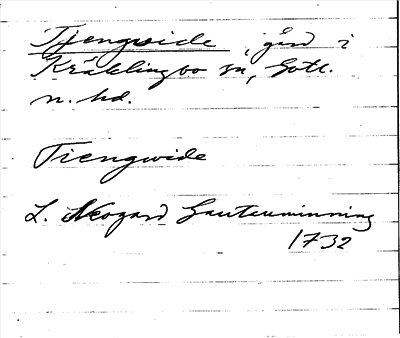 Tjengvide, gård i
Kräklingbo sn, Gotl.
n. hd.
Tiengwide
L. Neogard Gautauminning
1732